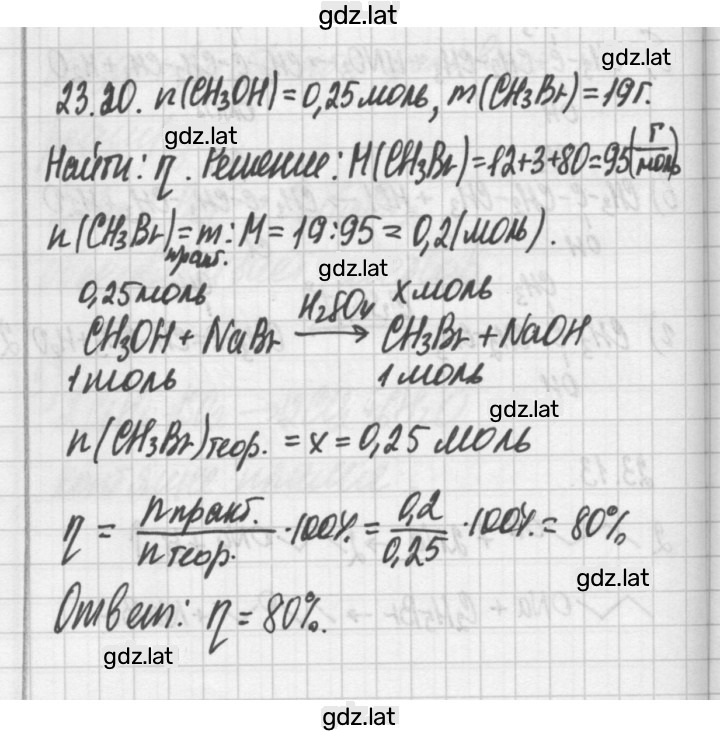 gdz.lat
gdz.lat
23.20. n(CH₃OH) = 0,25 моль, m(CH₃Br) = 19 г.
gdz.lat
Найти: η. Решение: M(CH₃Br) = 12+3+80 = 95 (г/моль)
n(CH₃Br)практ. = m : M = 19 : 95 = 0,2 (моль).
gdz.lat
0,25 моль x моль
CH₃OH + NaBr H₂SO₄ → CH₃Br + NaOH
1 моль 1 моль
gdz.lat
n(CH₃Br)теор. = x = 0,25 моль
η = n практ. / n теор. · 100% = 0,2 / 0,25 · 100% = 80%
gdz.lat
Ответ: η = 80%.
gdz.lat
gdz.lat